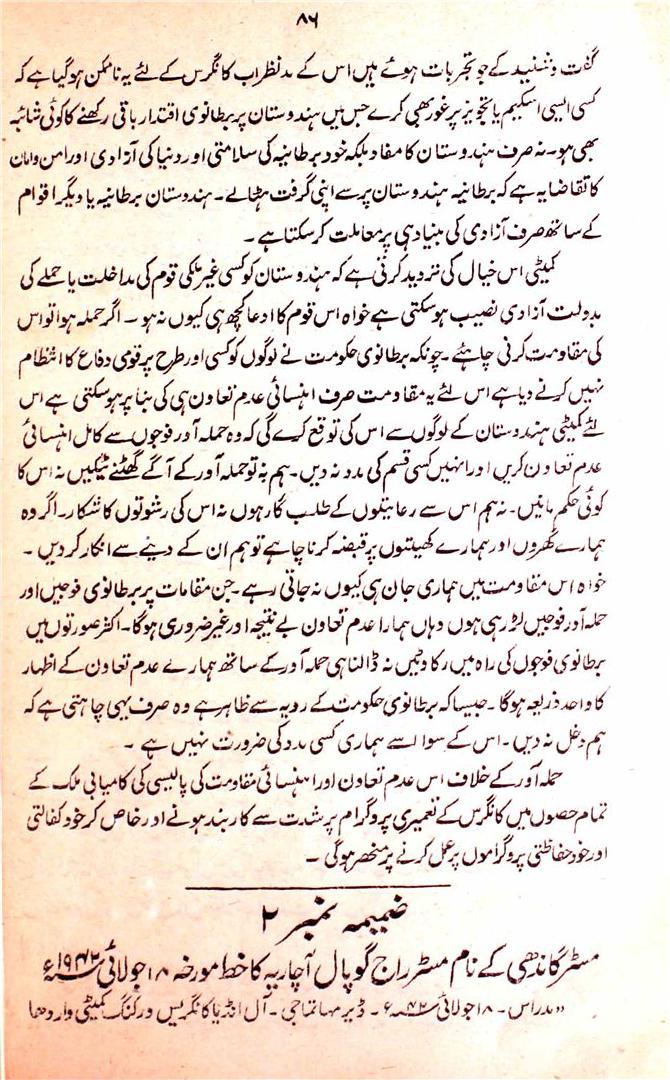 ۸۶
گفت و شنید کے جو تجربات ہوئے ہیں اس کے مدنظر اب کانگرس کے لئے یہ ناممکن ہوگیا ہے کہ
کسی ایسی اسکیم یا تجویز پر غور بھی کرے جس میں ہندوستان پر برطانوی اقتدار باقی رکھنے کا کوئی شائبہ
بھی ہو۔ نہ صرف ہندوستان کا مفاد بلکہ خود برطانیہ کی سلامتی اور دنیا کی آزادی اور امن و امان
کا تقاضا یہ ہے کہ برطانیہ ہندوستان پر سے اپنی گرفت ہٹالے۔ ہندوستان برطانیہ یا دیگر اقوام
کے ساتھ صرف آزادی کی بنیاد ہی پر معاملت کرسکتا ہے۔
کمیٹی اس خیال کی تردید کرتی ہے کہ ہندوستان کو کسی غیر ملکی قوم کی مداخلت یا حملے کی
بدولت آزادی نصیب ہوسکتی ہے خواہ اس قوم کا ادعا کچھ ہی کیوں نہ ہو۔ اگر حملہ ہوا تو اس
کی مقاومت کرنی چاہئے۔ چونکہ برطانوی حکومت نے لوگوں کو کسی اور طرح پر قومی دفاع کا انتظام
نہیں کرنے دیا ہے اس لئے یہ مقاومت صرف اہنسائی عدم تعاون ہی کی بنا پر ہوسکتی ہے اس
لئے کمیٹی ہندوستان کے لوگوں سے اس کی توقع کرے گی کہ وہ حملہ آور فوجوں سے کامل اہنسائی
عدم تعاون کریں اور انہیں کسی قسم کی مدد نہ دیں۔ ہم نہ تو حملہ آور کے آگے گھٹنے ٹیکیں نہ اس کا
کوئی حکم مانیں۔ نہ ہم اس سے رعایتوں کے طلب گار ہوں نہ اس کی رشوتوں کا شکار۔ اگر وہ
ہمارے گھروں اور ہمارے کھیتوں پر قبضہ کرنا چاہے تو ہم ان کے دینے سے انکار کردیں۔
خواہ اس مقاومت میں ہماری جان ہی کیوں نہ جاتی رہے۔ جن مقامات پر برطانوی فوجیں اور
حملہ آور فوجیں لڑ رہی ہوں وہاں ہمارا عدم تعاون بے نتیجہ اور غیر ضروری ہوگا۔ اکثر صورتوں میں
برطانوی فوجوں کی راہ میں رکاوٹیں نہ ڈالنا ہی حملہ آور کے ساتھ ہمارے عدم تعاون کے اظہار
کا واحد ذریعہ ہوگا۔ جیسا کہ برطانوی حکومت کے رویہ سے ظاہر ہے وہ صرف یہی چاہتی ہے کہ
ہم دخل نہ دیں۔ اس کے سوا اسے ہماری کسی مدد کی ضرورت نہیں ہے۔
حملہ آور کے خلاف اس عدم تعاون اور اہنسائی مقاومت کی پالیسی کی کامیابی ملک کے
تمام حصوں میں کانگرس کے تعمیری پروگرام پر شدت سے کاربند ہونے اور خاص کر خود کفالتی
اور خود حفاظتی پروگراموں پر عمل کرنے پر منحصر ہوگی۔
ضمیمہ نمبر ۲
مسٹر گاندھی کے نام مسٹر راج گوپال آچاریہ کا خط مورخہ ۱۸ جولائی ۱۹۴۲ء
"مدراس۔ ۱۸ جولائی ۴۲ء۔ ڈیر مہاتماجی۔ آل انڈیا کانگریس ورکنگ کمیٹی واردھا